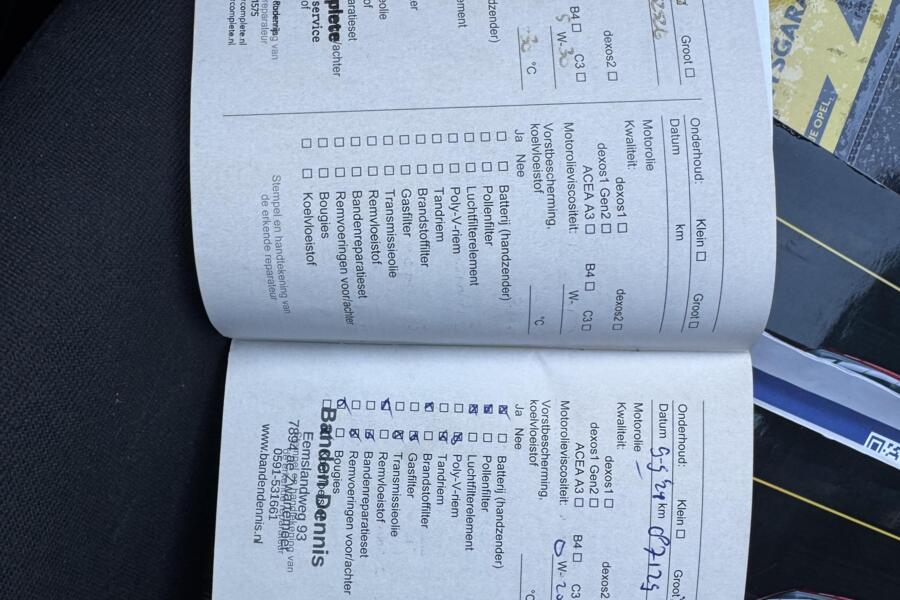 Groot ☐
dexos2 ☐
B4 ☐ C3 ☐
5 W-30
-30 °C
dzender)
ement
olie
raatieset
of
/achter
of
plete
service
1575
rcomplete.nl
rcomplete.nl
Onderhoud: Klein ☐ Groot ☐
Datum km
Motorolie
Kwaliteit:
dexos1 ☐ dexos2 ☐
dexos1 Gen2 ☐
ACEA A3 ☐ B4 ☐ C3 ☐
Motorolieviscositeit: W-
Vorstbescherming,
koelvloeistof °C
Ja Nee
☐ ☐ Batterij (handzender)
☐ ☐ Pollenfilter
☐ ☐ Luchtfilterelement
☐ ☐ Poly-V-riem
☐ ☐ Tandriem
☐ ☐ Brandstoffilter
☐ ☐ Gasfilter
☐ ☐ Transmissieolie
☐ ☐ Remvloeistof
☐ ☐ Bandenreparatieset
☐ ☐ Remvoeringen voor/achter
☐ ☐ Bougies
☐ ☐ Koelvloeistof
Stempel en handtekening van
de erkende reparateur
Onderhoud: Klein ☐ Groot
Datum km
Motorolie
Kwaliteit:
dexos1 ☐ dexos2
dexos1 Gen2 ☐
ACEA A3 ☐ B4 ☐ C3
Motorolieviscositeit: 0 W-20
Vorstbescherming,
koelvloeistof °C
Ja Nee
☒ ☐ Batterij (handzender)
☒ ☐ Pollenfilter
☒ ☐ Luchtfilterelement
☐ ☒ Poly-V-riem
☐ ☒ Tandriem
☒ ☐ Brandstoffilter
☐ ☒ Gasfilter
☐ ☒ Transmissieolie
☒ ☐ Remvloeistof
☐ ☒ Bandenreparatieset
☐ ☒ Remvoeringen voor/achter
☒ ☐ Bougies
Banden Dennis
Eemslandweg 93
7894
0591-531661
www.bandendennis.nl
JE OPEL.